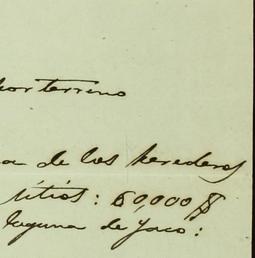 por terreno
a de los herederos
sitios: 60,000 $
laguna de Jaco: